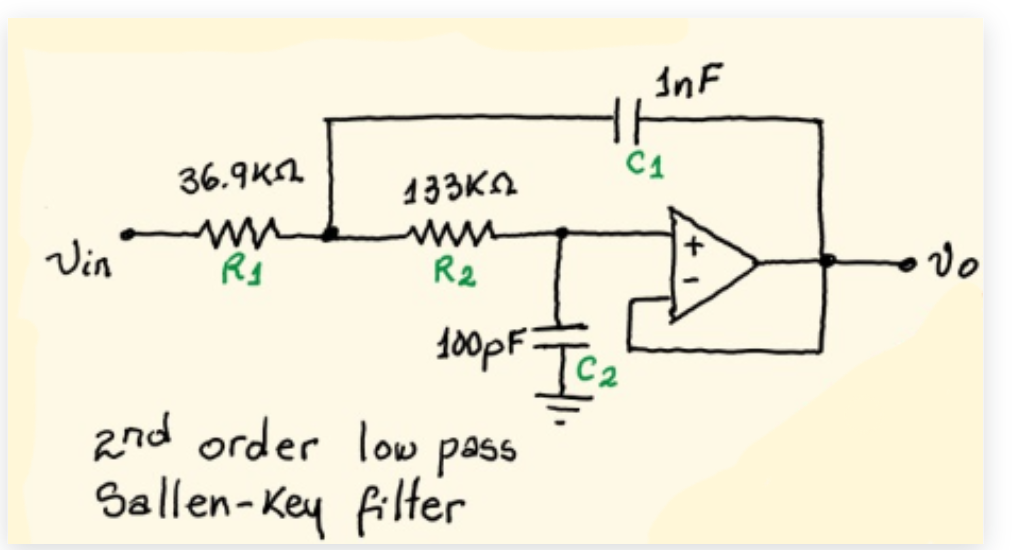 1nF
C1
36.9KΩ
133KΩ
Vin
R1
R2
+
-
Vo
100pF
C2
2nd order low pass
Sallen-Key filter